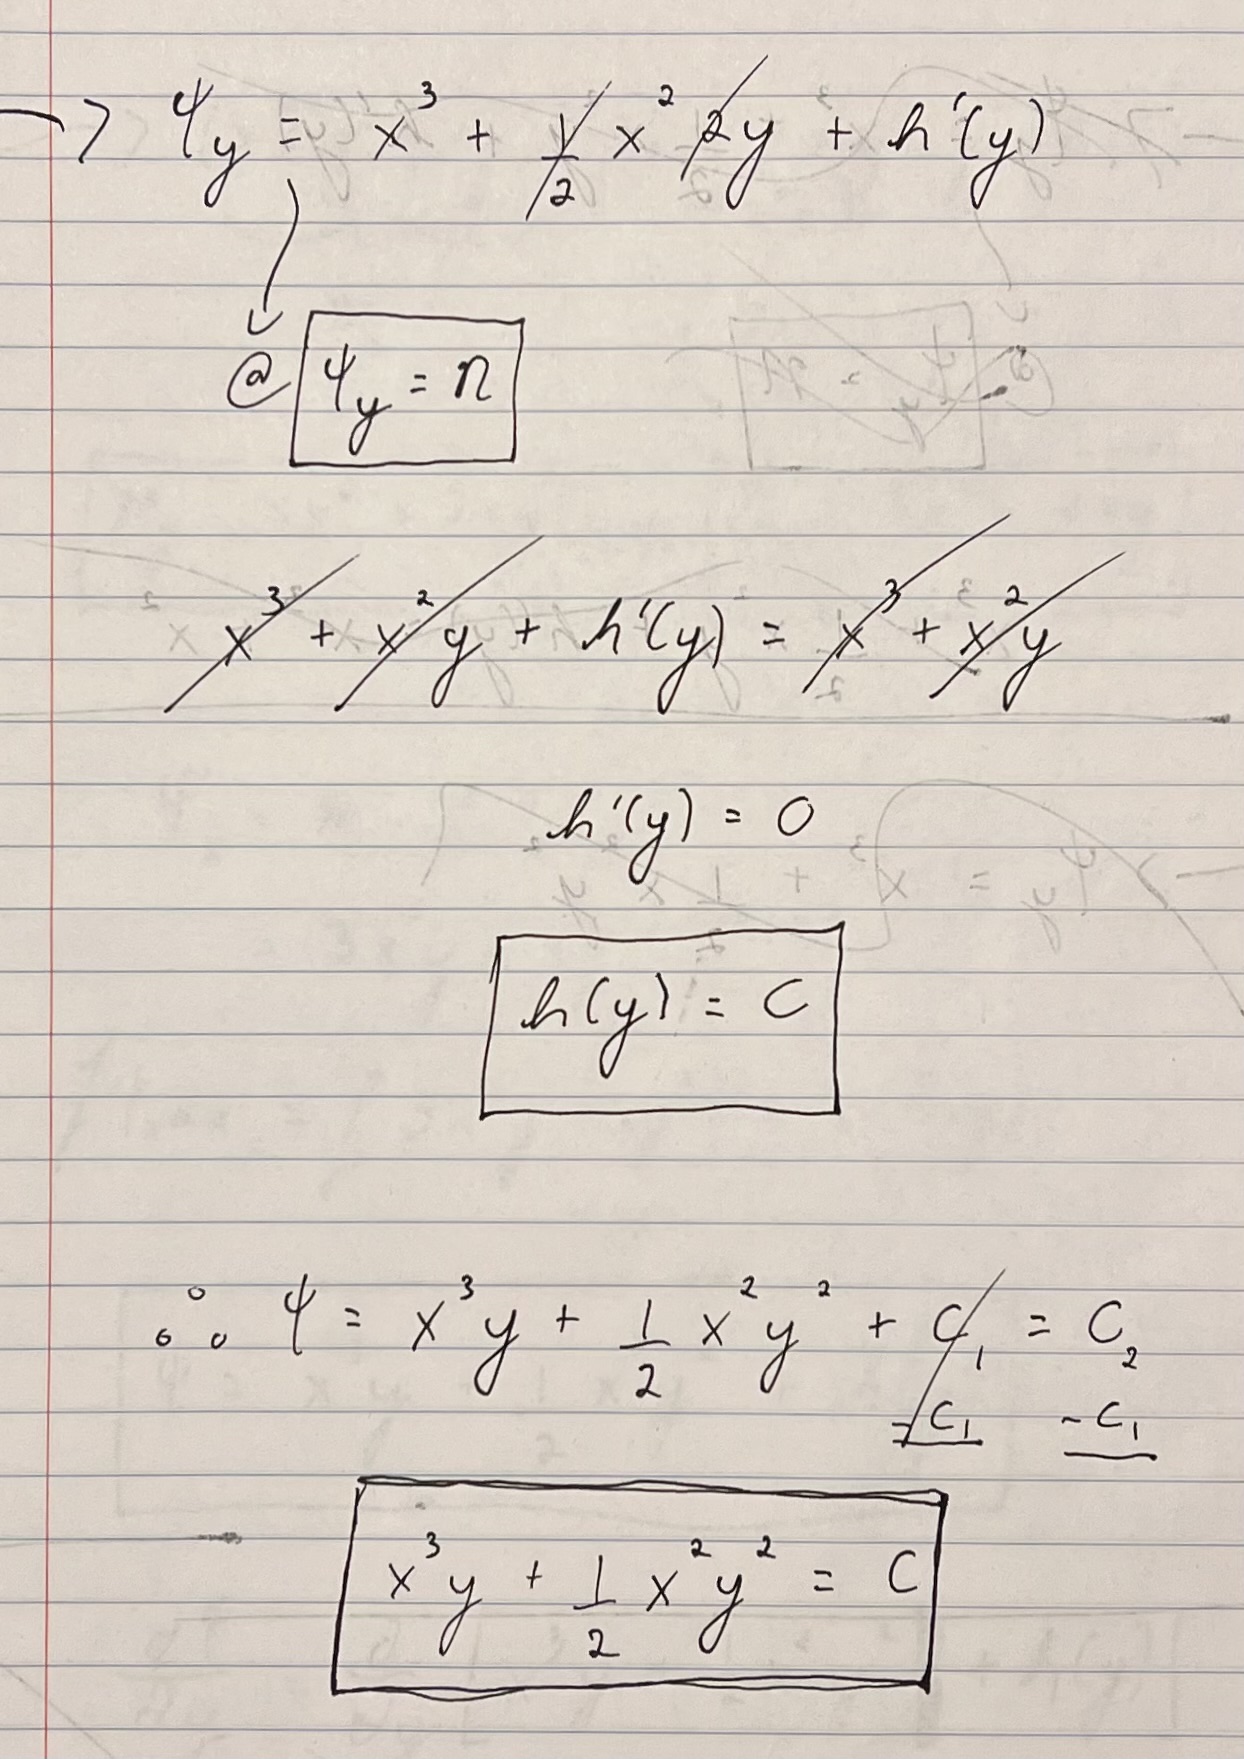 → Ψ_y = x³ + 1/2 x² 2y + h'(y)
@ Ψ_y = N
x³ + x² y + h'(y) = x³ + x² y
h'(y) = 0
h(y) = C
∴ Ψ = x³y + 1/2 x² y² + C₁ = C₂
- C₁ - C₁
x³y + 1/2 x² y² = C